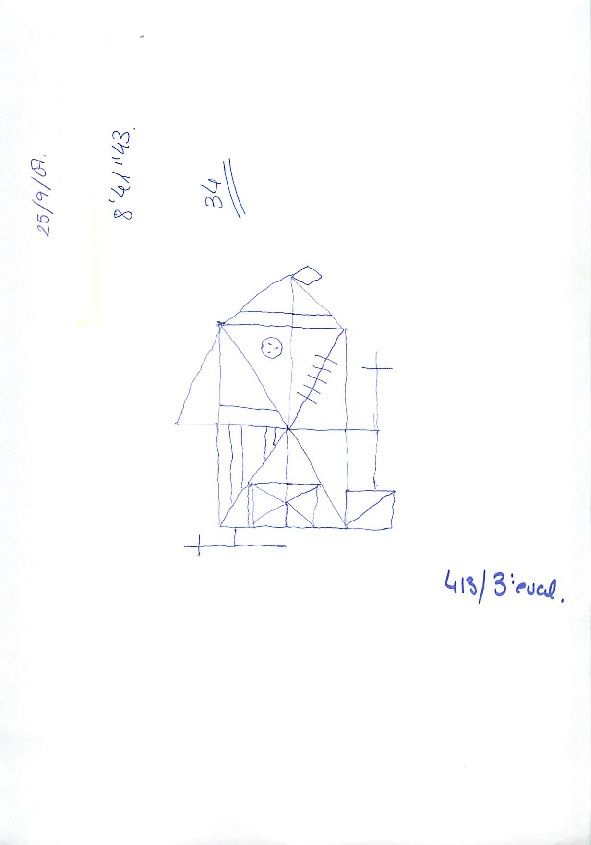 25/9/01.
8'41"43.
34
413/3ªeval.